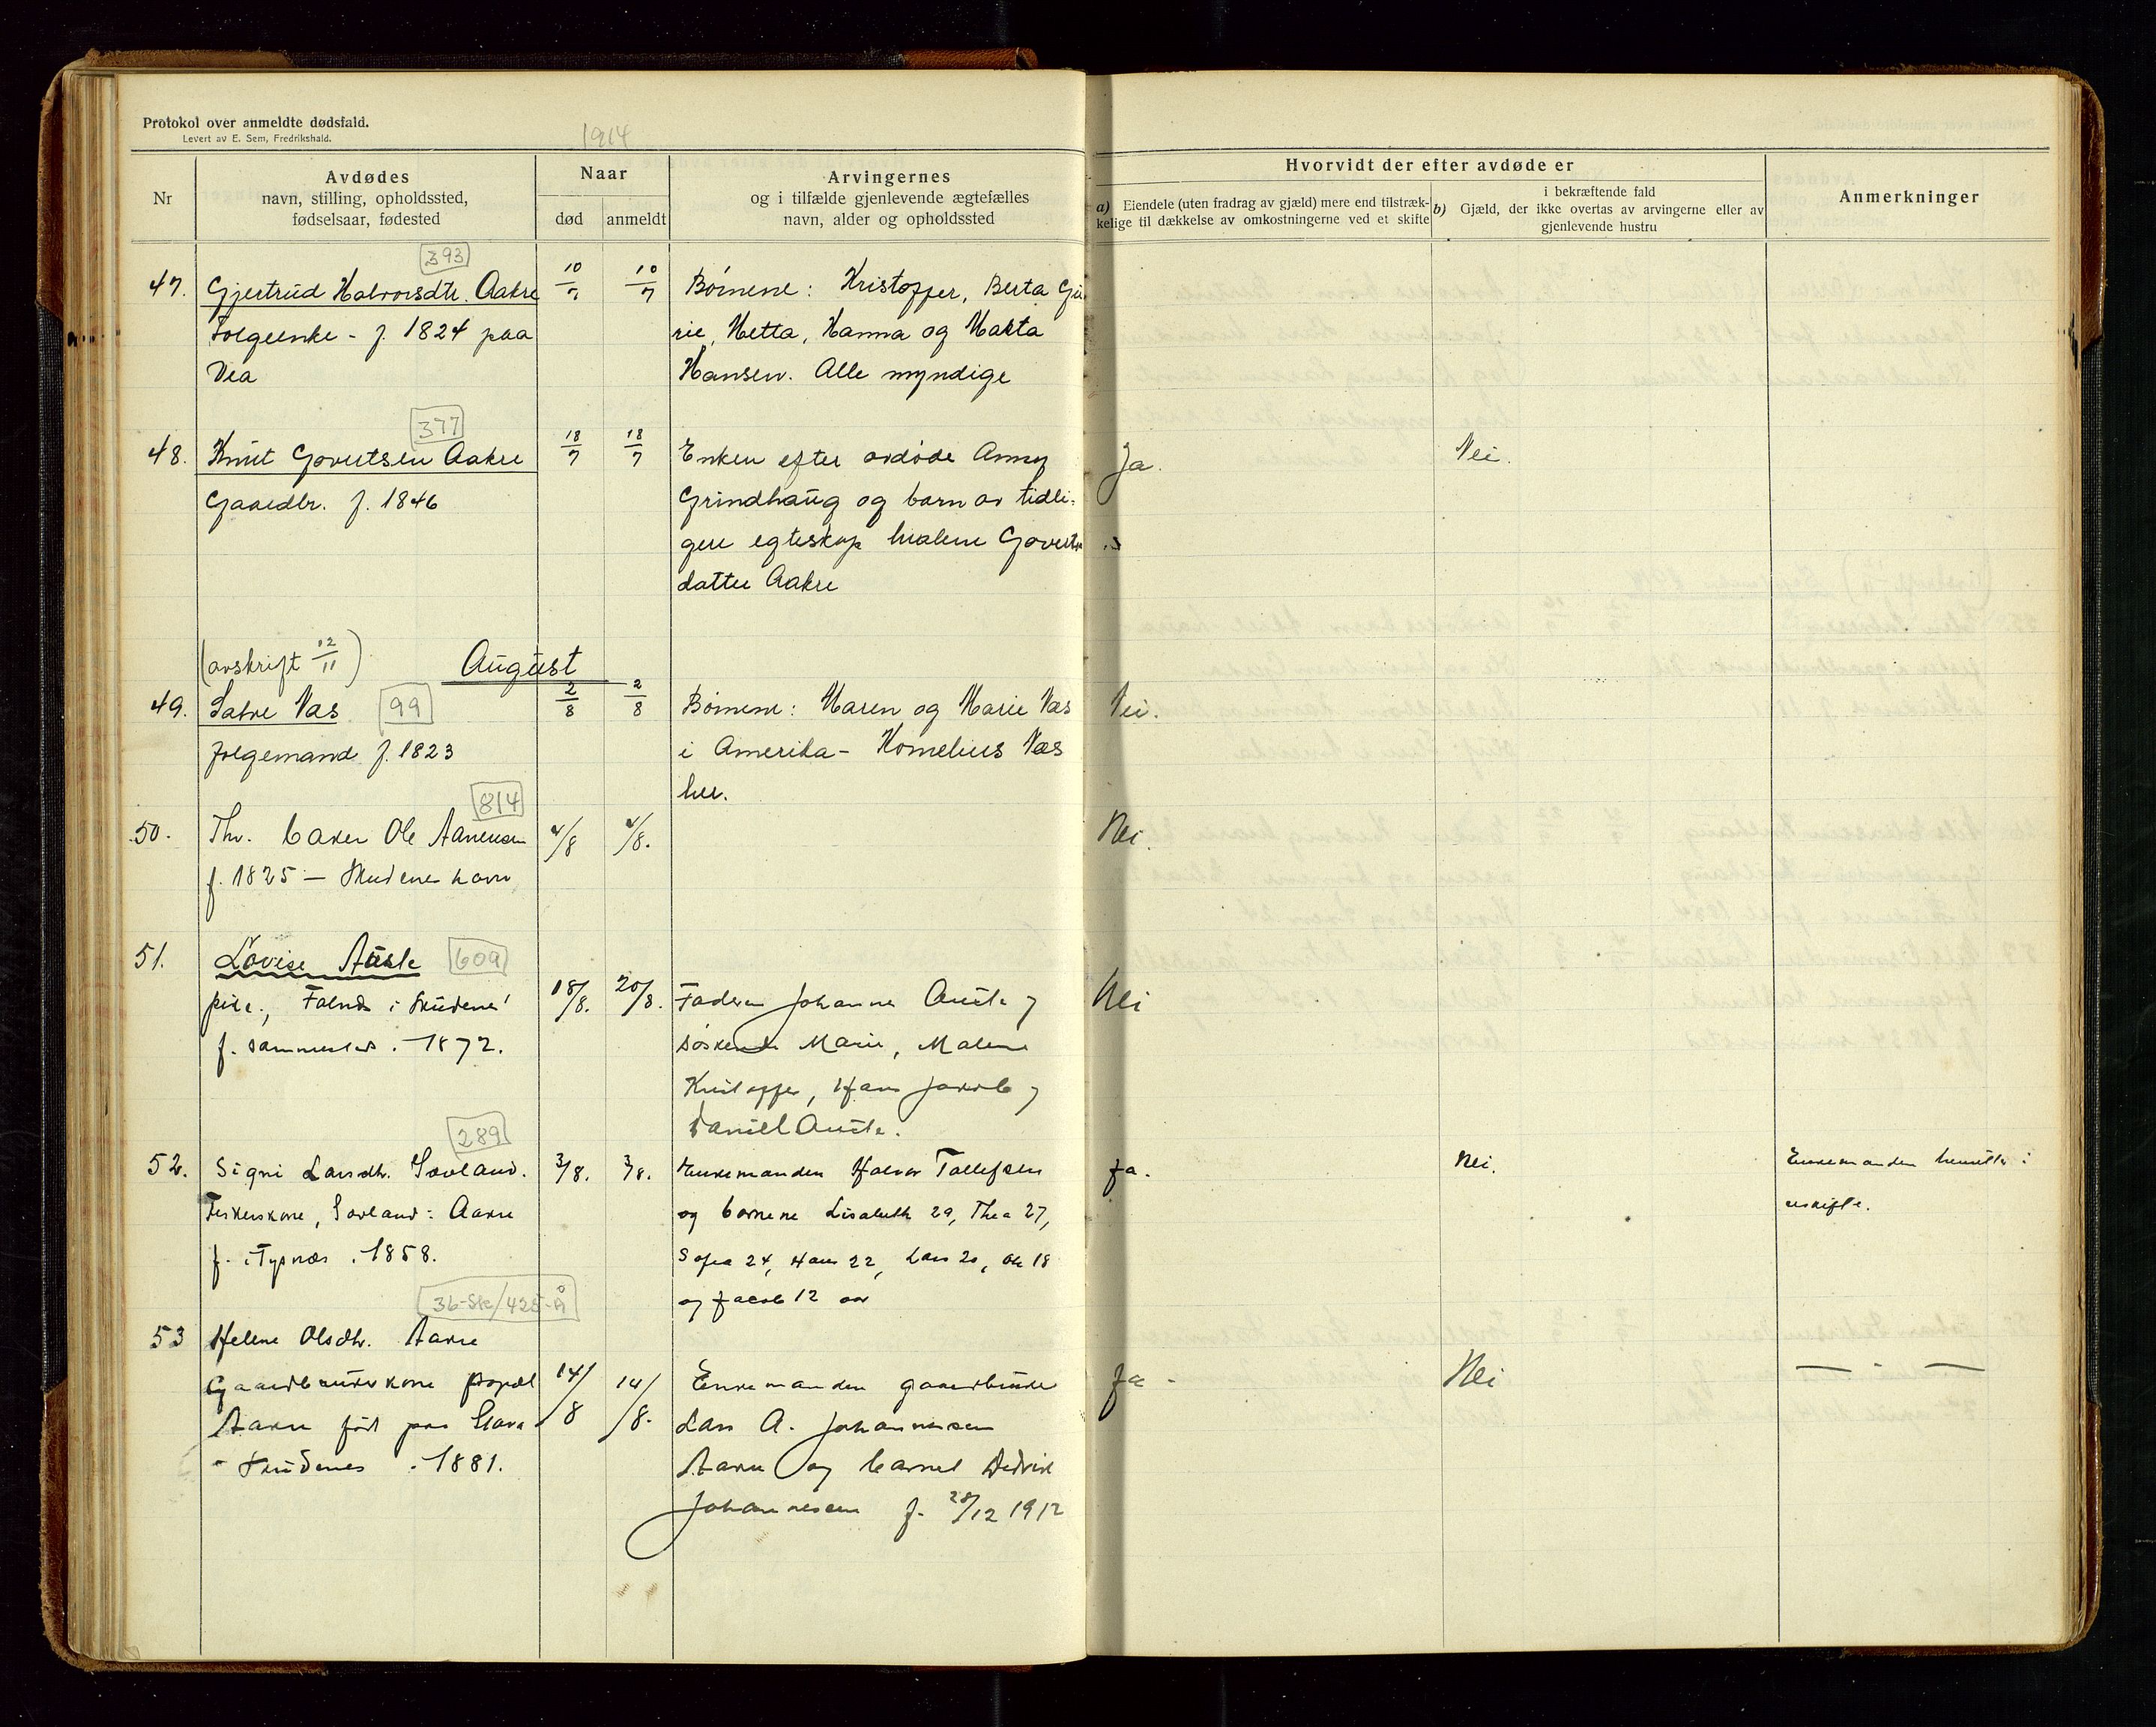 Protokol over anmeldte dødsfald.
Levert av E. Sem, Fredrikshald.
1914
Nr
Avdødes
navn, stilling, opholdssted,
fødselsaar, fødested
Naar
død
anmeldt
Arvingernes
og i tilfælde gjenlevende ægtefælles
navn, alder og opholdssted
Hvorvidt der efter avdøde er
a) Eiendele (uten fradrag av gjæld) mere end tilstræk-
kelige til dækkelse av omkostningerne ved et skifte
b) i bekræftende fald
Gjæld, der ikke overtas av arvingerne eller av
gjenlevende hustru
Anmerkninger
393
47. Gjertrud Halvorsdtr. Aakre 10/7 10/7 Børnene: Kristoffer, Berta
Folgeenke - f. 1824 paa Metta, Hanna og Marta
Vea Hansen. Alle myndige
377
48. Knut Govertsen Aakre 18/7 18/7 Enken efter avdøde Anny Ja. Nei.
Gaardbr. f. 1846 Grindhaug og barn av tidli-
gere egteskap Govertsdatter
datter Aakre
(avskrift 12/11) August
49. Vas 99 2/8 2/8 Børnene: Maren og Marie Vas Nei.
folgemand f. 1823 i Amerika - Kornelius Vas
her.
814
50. Thv. baker Ole Aanensen 4/8 4/8. Nei.
f. 1825 - Skudeneshavn
51. Lovise Austе 609
pike, Falnes i Skudenes 18/8. 20/8. Faderen Johannes og Nei
f. sammesteds. 1872. søskende Marie, Malene
Kristoffer, Hans Jakob og
Daniel
289
52. Signi Larsdtr. Sævland. 3/8. 3/8. Enkemanden Halvor Tollefsen Ja. Nei. Enkemanden hensitter i
Fiskerskone, Sævland i Aakre og børnene Lisabeth 29, Thea 27, uskifte.
f. i Tysnæs. 1858. Sofia 24, Hans 22, Lars 20, Ole 18
og Jacob 12 aar
36-Sk/425-Å
53 Helene Olsdtr. Aakre
Gaardbrukerkone 14/8 14/8. Enkemanden gaardbruker Ja - Nei — " —
Aakre født paa Stava Lars A. Johannesen
i Skudenes. 1881. Aakre og barnet Didrik
Johannesen f. 28/12 1912